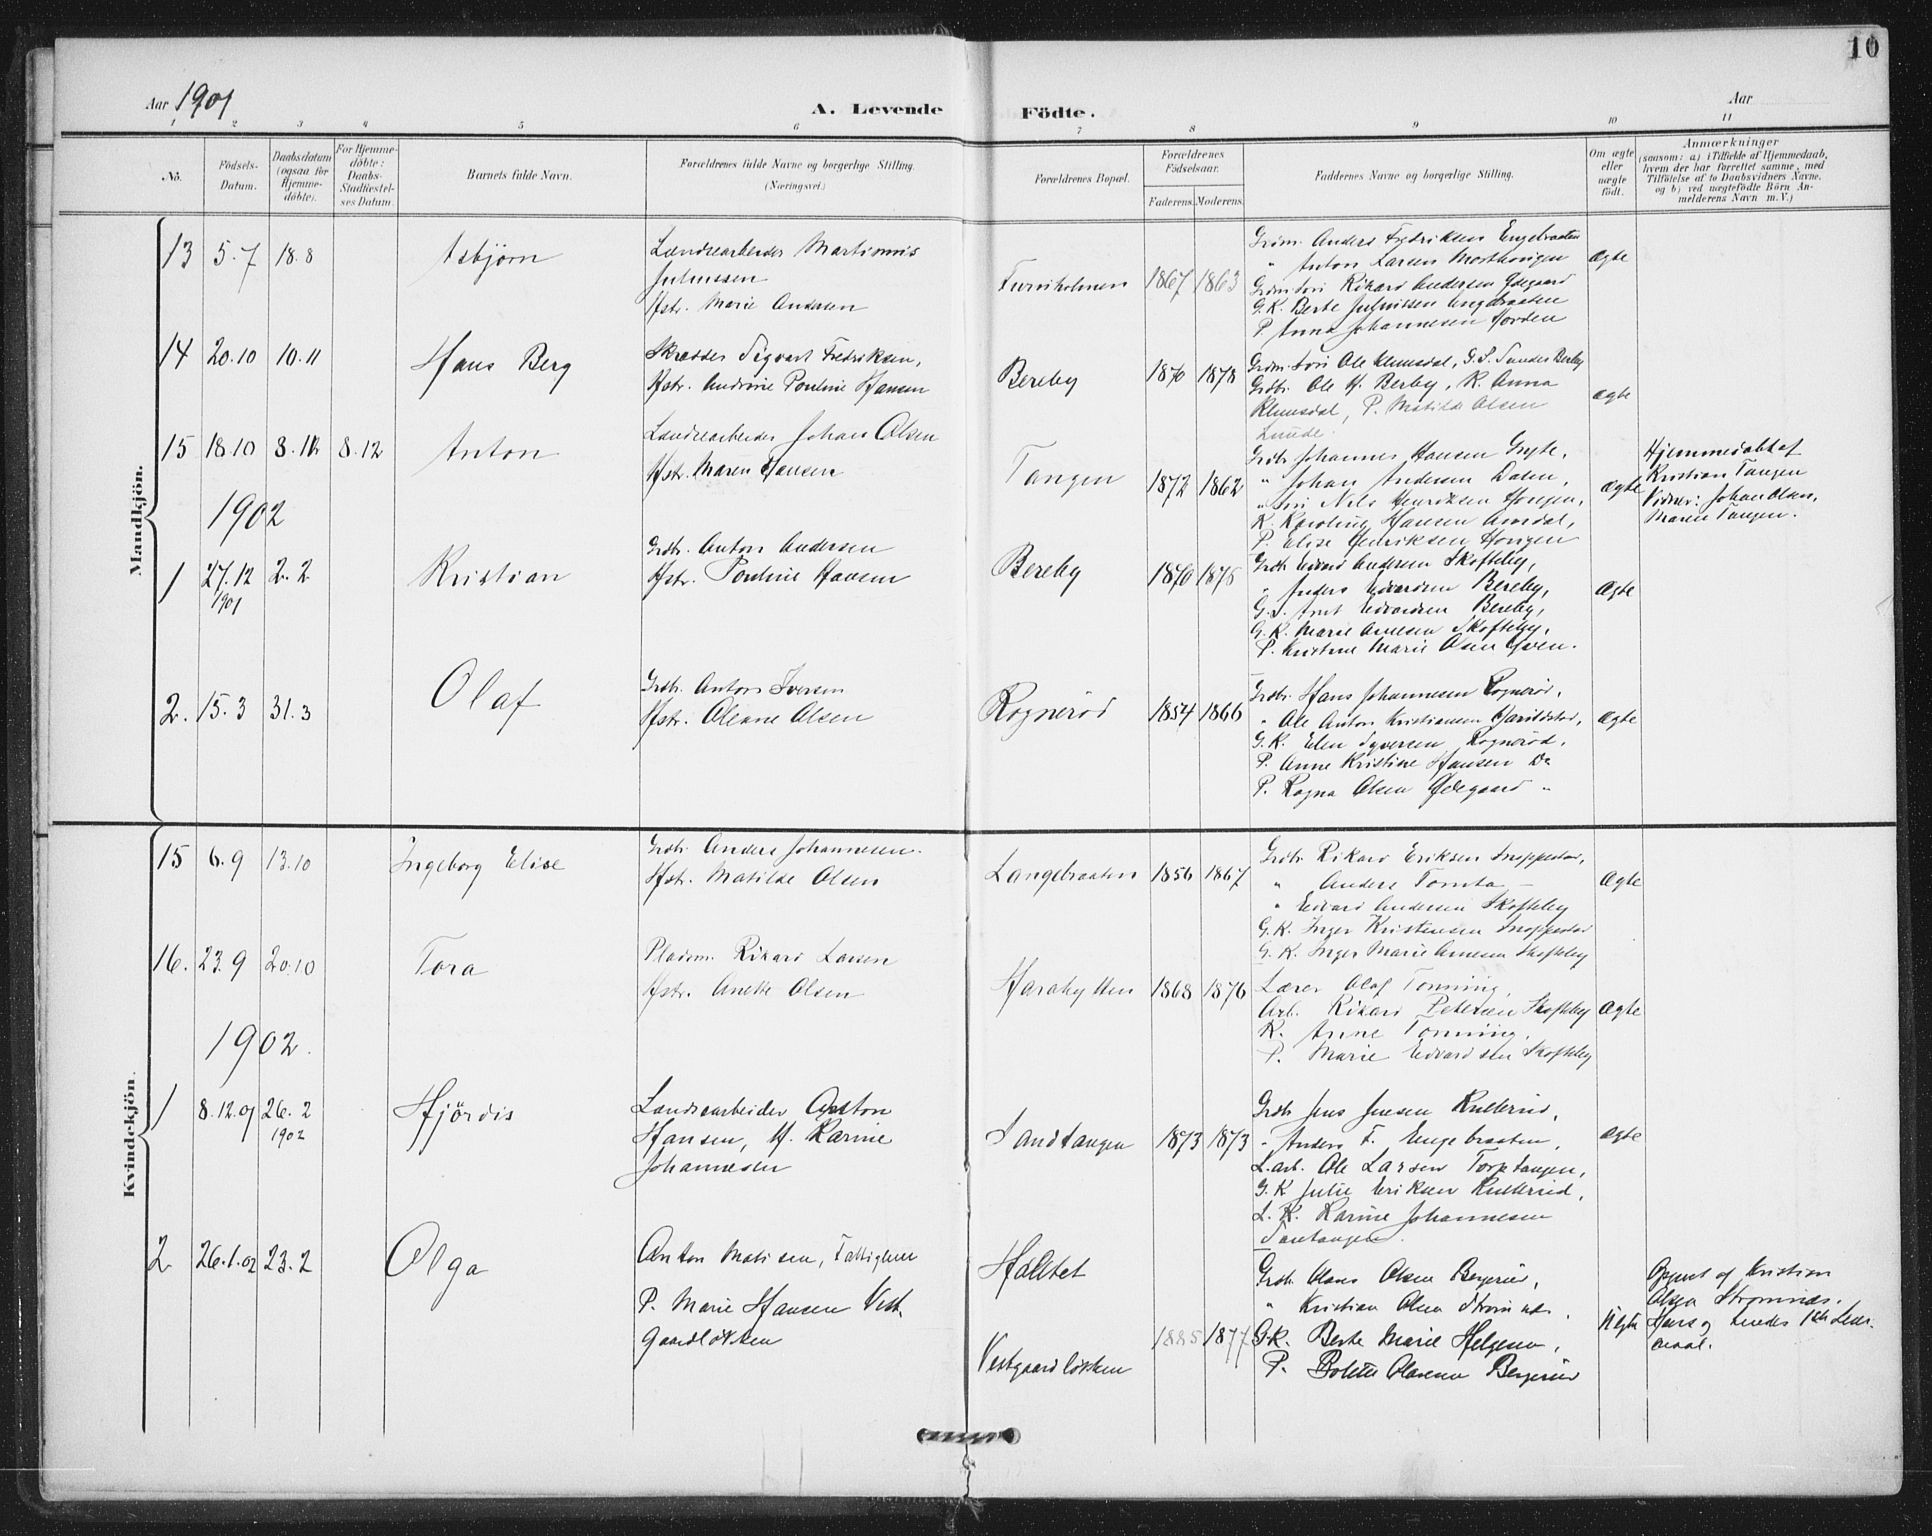 10
Aar 1901
A. Levende Födte.
Aar
1 2 3 4 5 6 7 8 9 10 11
No.
Födsels-
Datum.
Daabsdatum
(ogsaa for
Hjemme-
döbte).
For Hjemme-
döbte:
Daabs-
Stadfæstel-
ses Datum.
Barnets fulde Navn.
Forældrenes fulde Navne og borgerlige Stilling.
(Næringsvei.)
Forældrenes Bopæl.
Forældrenes
Födselsaar.
Faderens. Moderens.
Faddernes Navne og borgerlige Stilling.
Om ægte
eller
uægte
födt.
Anmærkninger
(saasom: a) i Tilfælde af Hjemmedaab,
hvem der har forrettet samme, med
Tilföielse af to Daabsvidners Navne,
og b) ved uægtefödte Börn An-
melderens Navn m. V.)
Mandkjön.
13 5.7 18.8 Asbjørn
Landsearbeider Martinius
Juliussen
Hstr. Marie Andersen
1867 1863
Grdm. Anders Fredriksen Engebraaten
" Anton Larsen
Rikard Andersen Ødegaard
G.K. Berte Juliussen Engebraaten
P. Anna Johannesen
Ægte
14 20.10 10.11 Hans Berg
Skrædder Sigvart Fredriksen,
Hstr. Andrine Pouline Hansen
Bereby 1870 1878
Ole Klemsdal, G.S. Berby
Grdbr. Ole H. Berby, K. Anna
Klemsdal, P. Matilde Olsen
Lunde.
Ægte
15 18.10 8.12 8.12 Anton
Landsearbeider Johan Olsen
Hstr. Maren Hansen
Tangen 1872 1862
Grdb. Johannes Hansen
" Johan Andersen Dalen,
Nils Henriksen
K. Karoline Hansen
P. Elise Henriksen
Ægte
Hjemmedøbt af
Kristian Tangen
Vidner: Johan Olsen,
Maren Tangen.
1902
1 27.12 2.2 Kristian
1901
Grdb. Anton Andersen
Hstr. Pouline Hansen
Bereby 1870 1875
Grdb. Edvard Andersen Skofteby,
" Anders Edvardsen Bereby,
G.S. Edvardsen Bereby,
G.K. Marie Arnesen Skofteby,
P. Kristine Marie Olsen
Ægte
2. 15.3 31.3 Olaf
Grdb. Anton Iversen
Hstr. Oleane Olsen
Rognerød 1854 1866
Grdb. Hans Johannesen Rognerød,
" Ole Anton Kristiansen
G.K. Elen Syversen Rognerød,
P. Anne Kristine Hansen Do
P. Ragna Olsen Ødegaard "
Ægte
Kvindekjön.
15 6.9 13.10 Ingeborg Elise
Grdb. Anders Johannesen.
Hstr. Matilde Olsen
Langebraaten 1856 1867
Grdb. Rikard Eriksen
" Anders Tomta
" Edvard Andersen Skofteby
G.K. Inger Kristensen
G.K. Inger Marie Arnesen Skofteby
Ægte
16. 23.9 20.10 Tora
Pladsm. Rikard Larsen
Hstr. Anette Olsen
Harehytten 1868 1876
Lærer Olaf Tønning,
Arb. Rikard Petersen Skofteby
K. Anne Tønning,
P. Marie Edvardsen Skofteby
Ægte
1902.
1 8.12.01 26.2 Hjördis
1902
Landsearbeider Anton
Hansen, H. Karine
Johannesen
Sandtangen 1873 1873
Grdb. Jens Jensen Kullerud,
" Anders F. Engebraaten,
L.arb. Ole Larsen Torptangen,
G.K. Julie Eriksen Kullerud,
L.K. Karine Johannesen
Ægte
2 26.1.02 23.2 Olga
Anton Matisen,
P. Marie Hansen Vest-
gaardløkken
Holtet
Vestgaardløkken
1885 1877
Grdb. Olaus Olsen Bergerud,
" Kristian Olsen Strømnes.
G.K. Berte Marie Helgesen,
P. Bolette Olausen Bergerud
Uægte
Opgivet af Kristian
Olsen Strømnes.